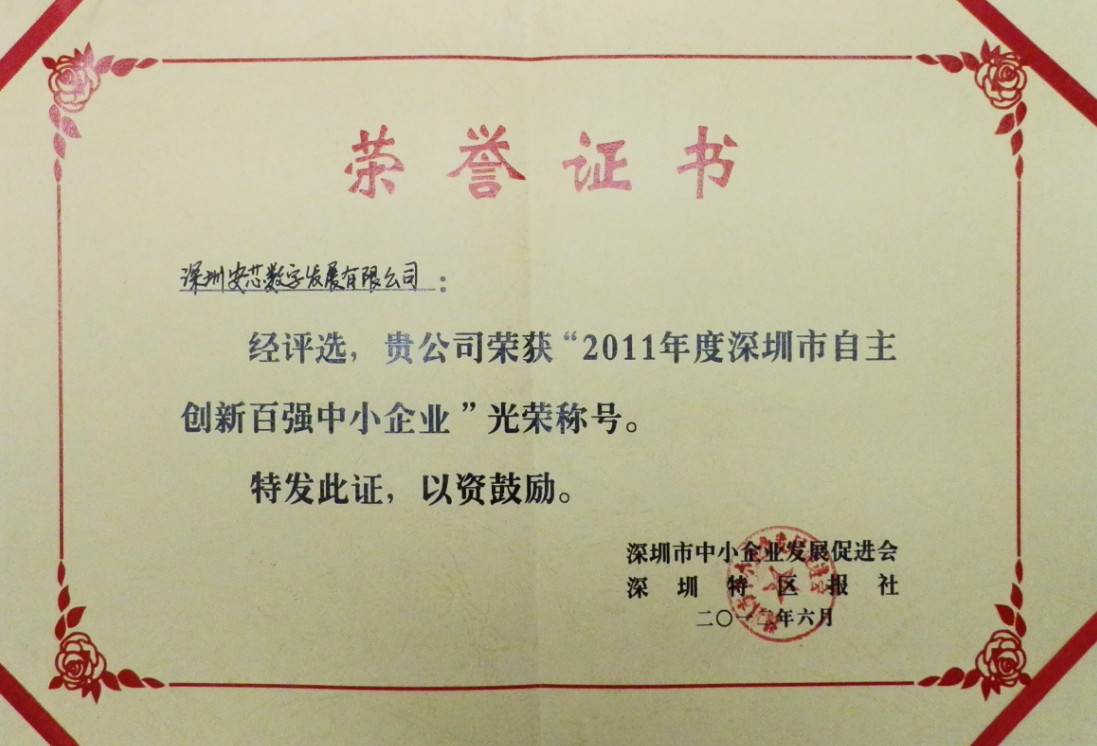 荣誉证书
深圳安芯数字发展有限公司:
经评选,贵公司荣获“2011年度深圳市自主
创新百强中小企业”光荣称号。
特发此证,以资鼓励。
深圳市中小企业发展促进会
深圳特区报社
二〇一二年六月